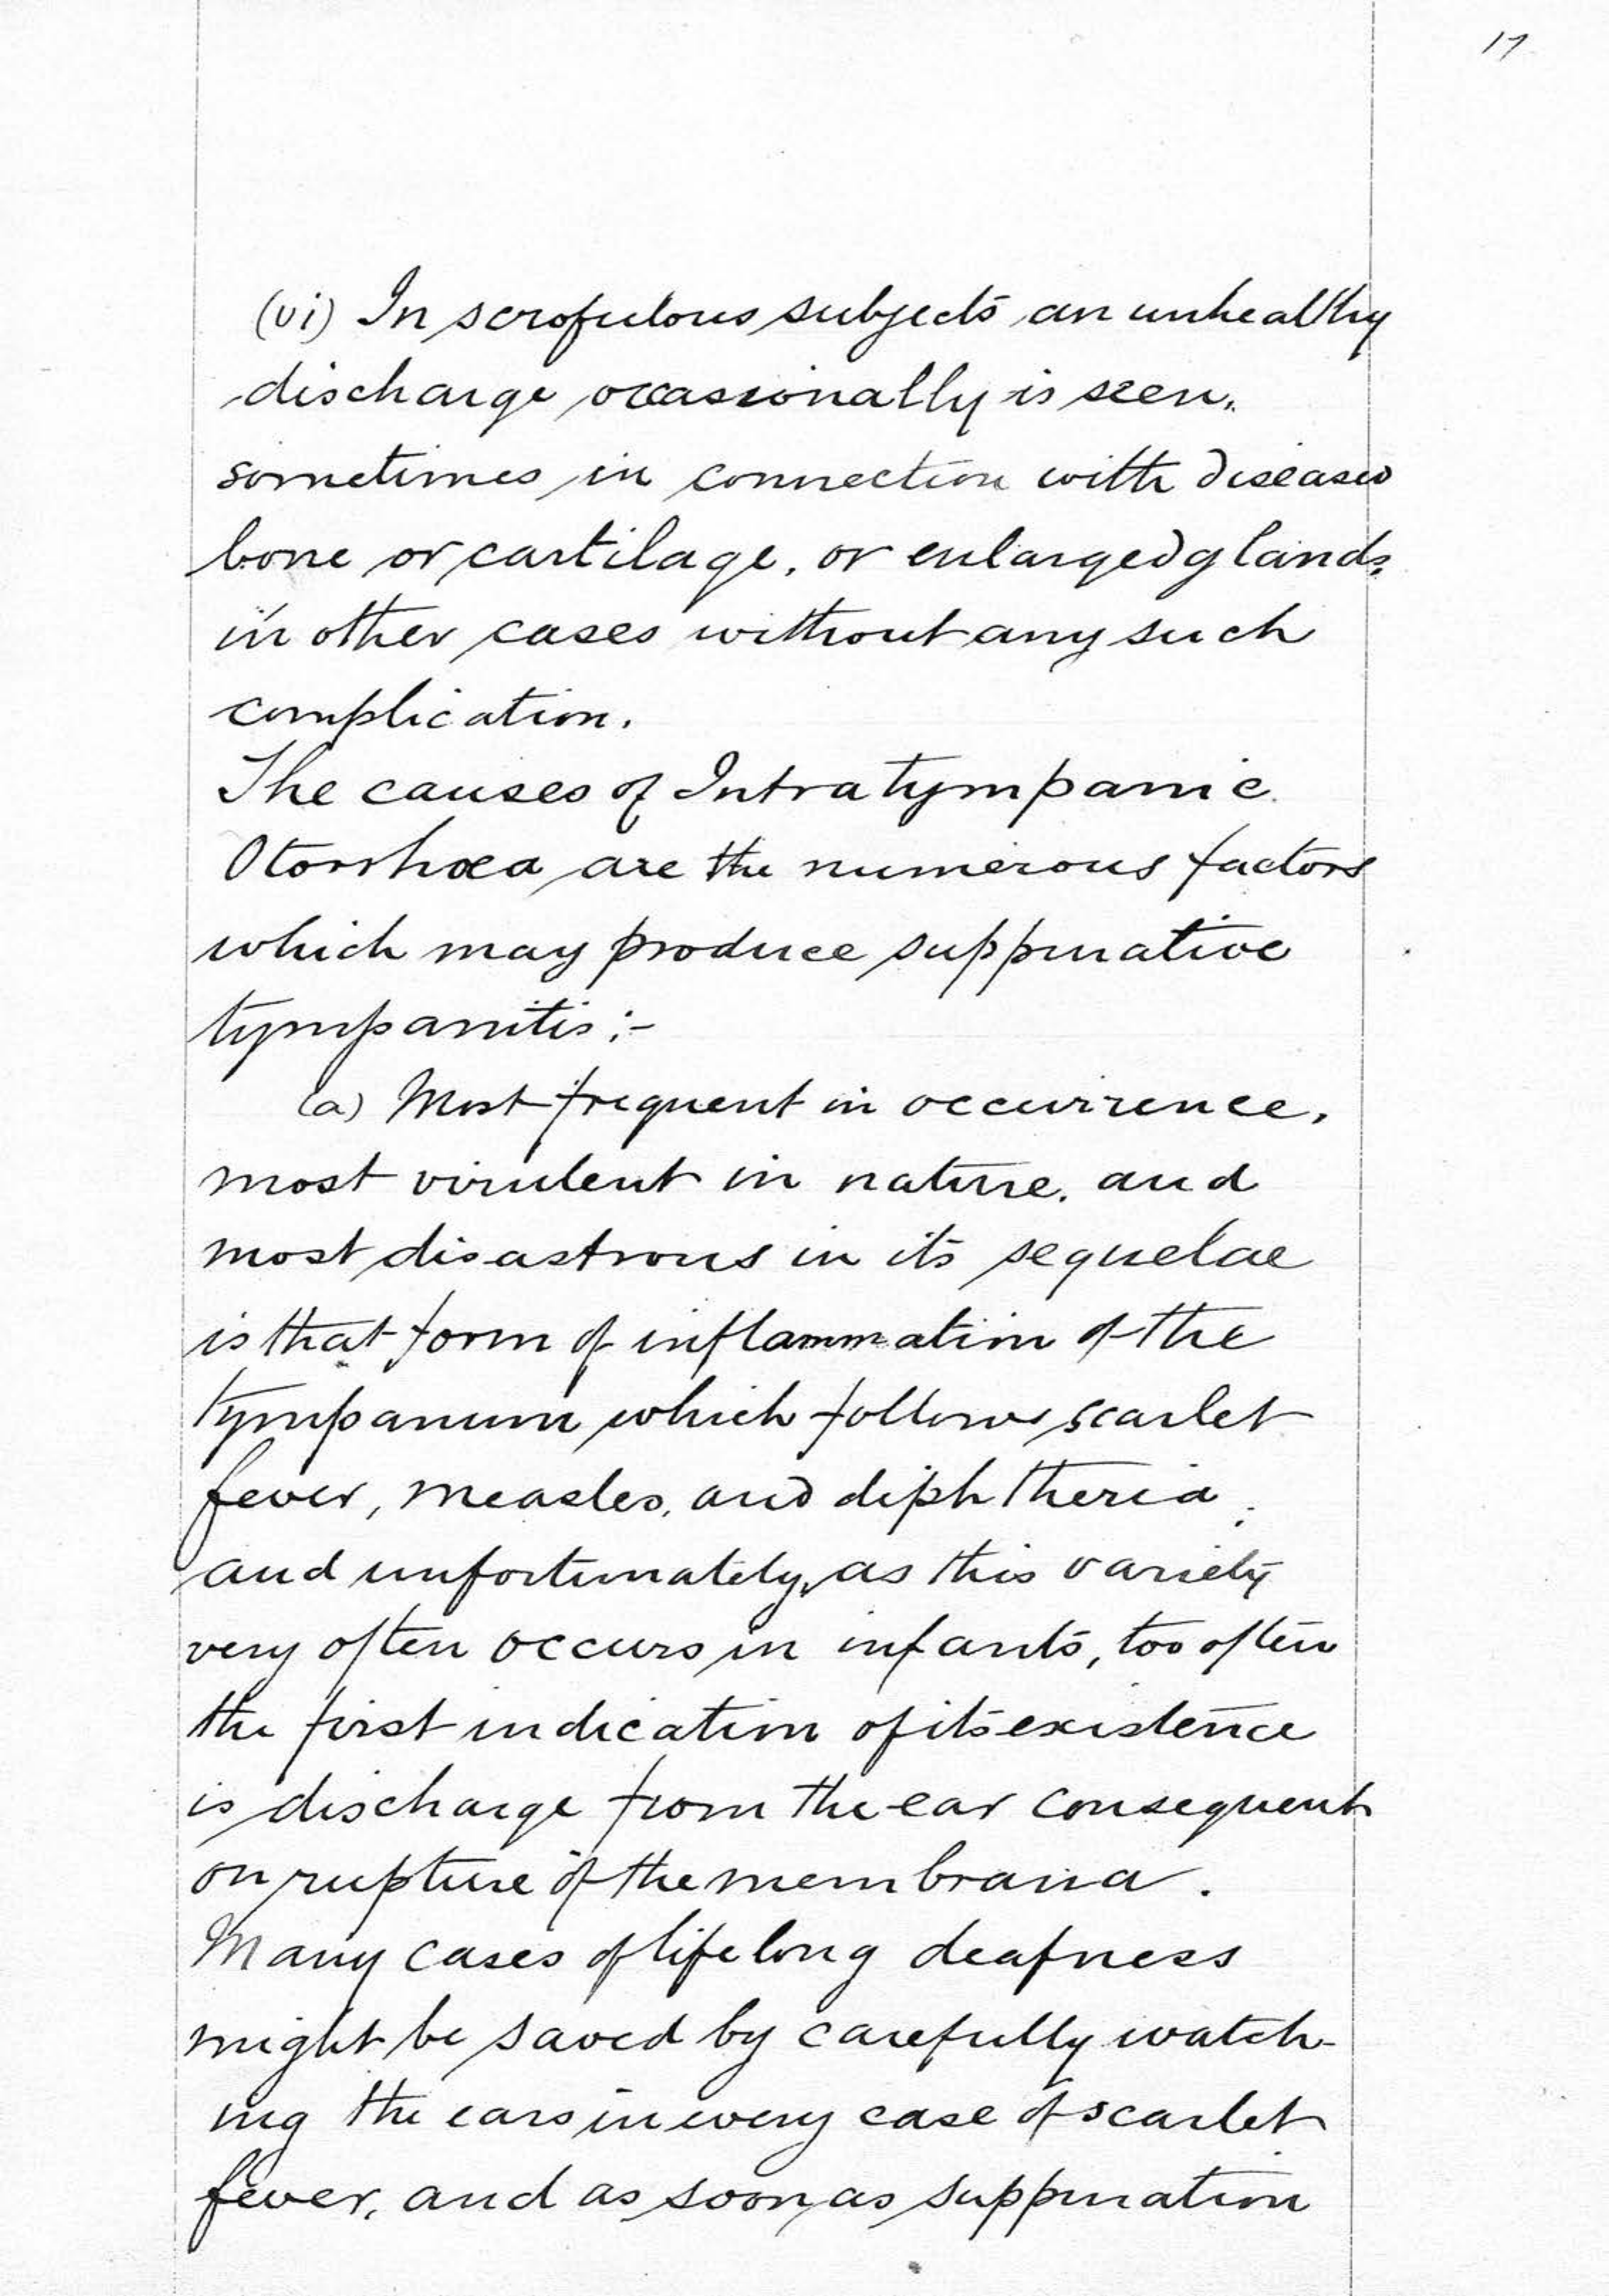 17
(vi) In scrofulous subjects an unhealthy
discharge occasionally is seen,
sometimes in connection with diseased
bone or cartilage, or enlarged glands,
in other cases without any such
complication.
The causes of Intratympanic
Otorrhœa are the numerous factors
which may produce suppurative
tympanitis :-
(a) Most frequent in occurrence,
most virulent in nature, and
most disastrous in its sequelae
is that form of inflammation of the
tympanum which follows scarlet
fever, measles, and diphtheria;
and unfortunately, as this variety
very often occurs in infants, too often
the first indication of its existence
is discharge from the ear consequent
on rupture of the membrana.
Many cases of lifelong deafness
might be saved by carefully watch-
ing the ears in every case of scarlet
fever, and as soon as suppuration